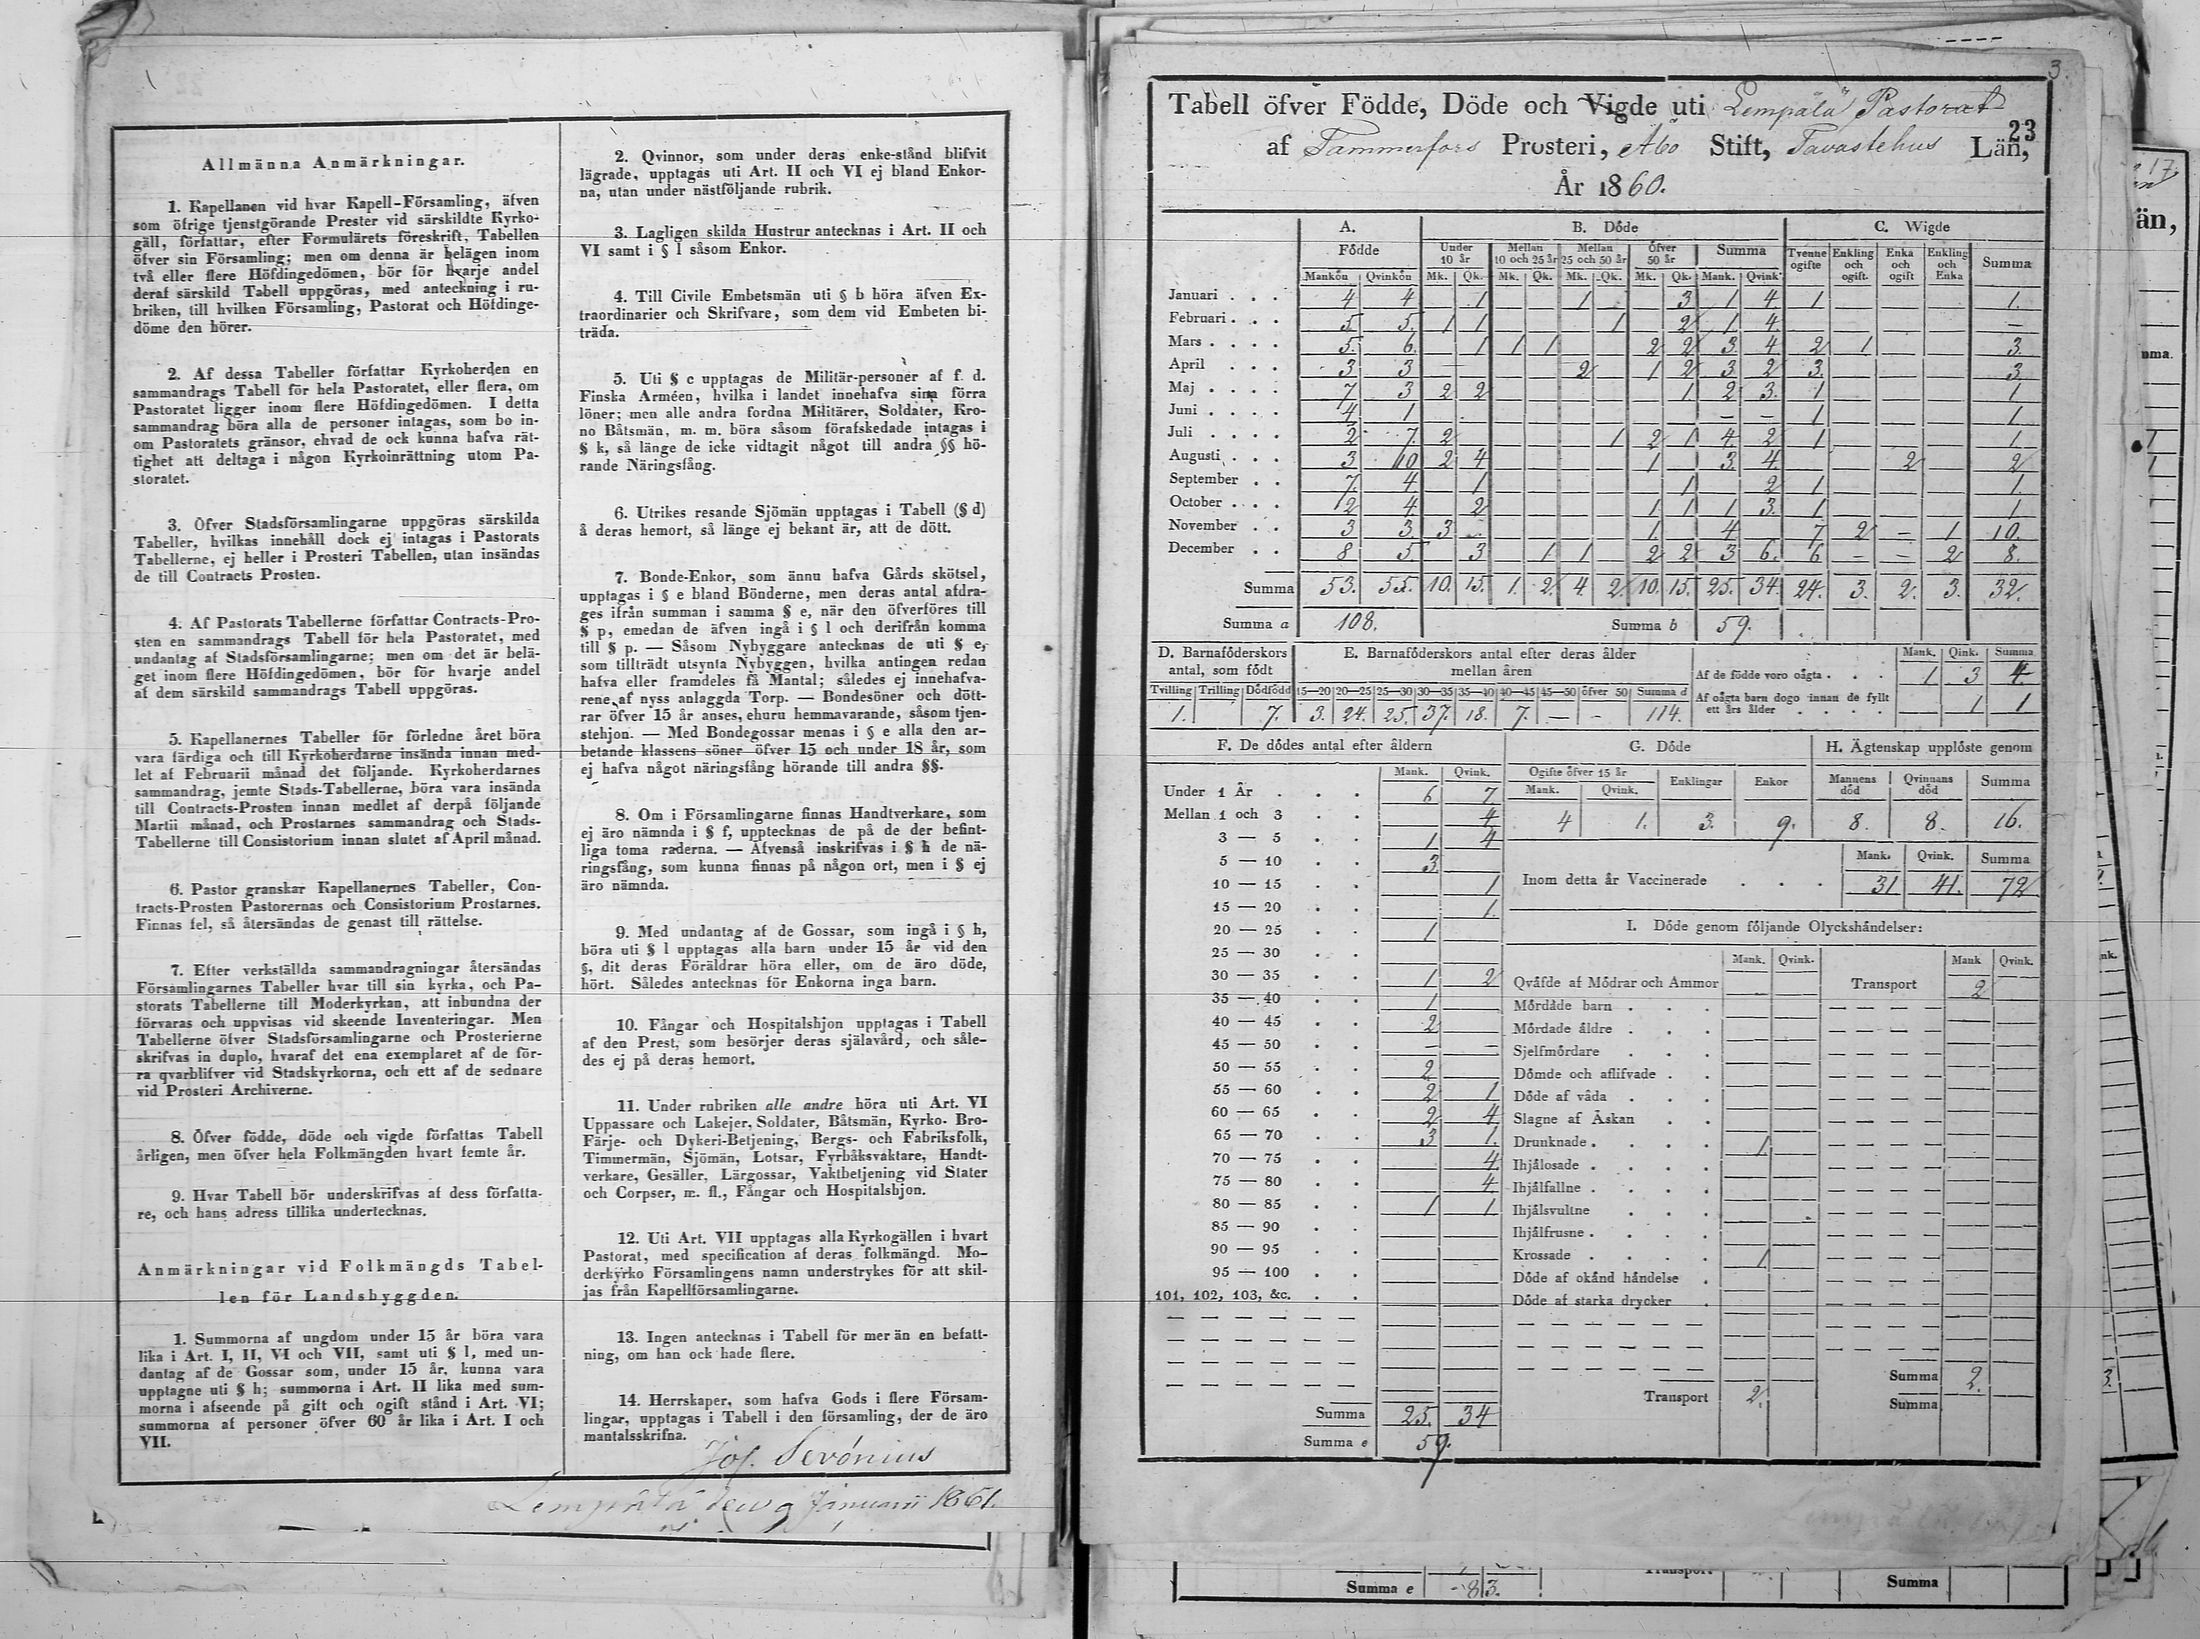 Allmänna Anmärkningar.
1. Kapellanen vid hvar Kapell-Församling, äfven
som öfrige tjenstgörande Prester vid särskildte Kyrko-
gäll, författar, efter Formulärets föreskrift, Tabellen
öfver sin Församling; men om denna är belägen inom
två eller flere Höfdingedömen, bör för hvarje andel
deraf särskild Tabell uppgöras, med anteckning i ru-
briken, till hvilken Församling, Pastorat och Höfdinge-
döme den hörer.
2. Af dessa Tabeller författar Kyrkoherden en
sammandrags Tabell för hela Pastoratet, eller flera, om
Pastoratet ligger inom flere Höfdingedömen. I detta
sammandrag böra alla de personer intagas, som bo in-
om Pastoratets gränsor, ehvad de ock kunna hafva rät-
tighet att deltaga i någon Kyrkoinrättning utom Pa-
storatet.
3. Öfver Stadsförsamlingarne uppgöras särskilda
Tabeller, hvilkas innehåll dock ej intagas i Pastorats
Tabellerne, ej heller i Prosteri Tabellen, utan insändas
de till Contracts Prosten.
4. Af Pastorats Tabellerne författar Contracts-Pro-
sten en sammandrags Tabell för hela Pastoratet, med
undantag af Stadsförsamlingarne; men om det är belä-
get inom flere Höfdingedömen, bör för hvarje andel
af dem särskild sammandrags Tabell uppgöras.
5. Kapellanernes Tabeller för förledne året böra
vara färdiga och till Kyrkoherdarne insända innan med-
let af Februarii månad det följande. Kyrkoherdarnes
sammandrag, jemte Stads-Tabellerne, böra vara insända
till Contracts-Prosten innan medlet af derpå följande
Martii månad, och Prostarnes sammandrag och Stads-
Tabellerne till Consistorium innan slutet af April månad.
6. Pastor granskar Kapellanernes Tabeller, Con-
tracts-Prosten Pastorernas och Consistorium Prostarnes.
Finnas fel, så återsändas de genast till rättelse.
7. Efter verkställda sammandragningar återsändas
Församlingarnes Tabeller hvar till sin kyrka, och Pa-
storats Tabellerne till Moderkyrkan, att inbundna der
förvaras och uppvisas vid skeende Inventeringar. Men
Tabellerne öfver Stadsförsamlingarne och Prosterierne
skrifvas in duplo, hvaraf det ena exemplaret af de för-
ra qvarblifver vid Stadskyrkorna, och ett af de sednare
vid Prosteri Archiverne.
8. Öfver födde, döde och vigde författas Tabell
årligen, men öfver hela Folkmängden hvart femte år.
9. Hvar Tabell bör underskrifvas af dess författa-
re, och hans adress tillika undertecknas.
Anmärkningar vid Folkmängds Tabel-
len för Landsbyggden.
1. Summorna af ungdom under 15 år böra vara
lika i Art. I, II, VI och VII, samt uti § l, med un-
dantag af de Gossar som, under 15 år, kunna vara
upptagne uti § h; summorna i Art. II lika med sum-
morna i afseende på gift och ogift stånd i Art. VI;
summorna af personer öfver 60 år lika i Art. I och
VII.
2. Qvinnor, som under deras enke-stånd blifvit
lägrade, upptagas uti Art. II och VI ej bland Enkor-
na, utan under nästföljande rubrik.
3. Lagligen skilda Hustrur antecknas i Art. II och
VI samt i § l såsom Enkor.
4. Till Civile Embetsmän uti § b höra äfven Ex-
traordinarier och Skrifvare, som dem vid Embeten bi-
träda.
5. Uti § c upptagas de Militär-personer af f. d.
Finska Arméen, hvilka i landet innehafva sina förra
löner; men alle andra fordna Militärer, Soldater, Kro-
no Båtsmän, m. m. böra såsom förafskedade intagas i
§ k, så länge de icke vidtagit något till andra §§ hö-
rande Näringsfång.
6. Utrikes resande Sjömän upptagas i Tabell (§ d)
å deras hemort, så länge ej bekant är, att de dött.
7. Bonde-Enkor, som ännu hafva Gårds skötsel,
upptagas i § e bland Bönderne, men deras antal afdra-
ges ifrån summan i samma § e, när den öfverföres till
§ p, emedan de äfven ingå i § l och derifrån komma
till § p. — Såsom Nybyggare antecknas de uti § e,
som tillträdt utsynta Nybyggen, hvilka antingen redan
hafva eller framdeles få Mantal; således ej innehafva-
rene af nyss anlaggda Torp. — Bondesöner och dött-
rar öfver 15 år anses, ehuru hemmavarande, såsom tjen-
stehjon. — Med Bondegossar menas i § e alla den ar-
betande klassens söner öfver 15 och under 18 år, som
ej hafva något näringsfång hörande till andra §§.
8. Om i Församlingarne finnas Handtverkare, som
ej äro nämnda i § f, upptecknas de på de der befint-
liga toma raderna. — Äfvenså inskrifvas i § h de nä-
ringsfång, som kunna finnas på någon ort, men i § ej
äro nämnda.
9. Med undantag af de Gossar, som ingå i § h,
böra uti § l upptagas alla barn under 15 år vid den
§, dit deras Föräldrar höra eller, om de äro döde,
hört. Således antecknas för Enkorna inga barn.
10. Fångar och Hospitalshjon upptagas i Tabell
af den Prest, som besörjer deras själavård, och såle-
des ej på deras hemort.
11. Under rubriken alle andre höra uti Art. VI
Uppassare och Lakejer, Soldater, Båtsmän, Kyrko- Bro-
Färje- och Dykeri-Betjening, Bergs- och Fabriksfolk,
Timmermän, Sjömän, Lotsar, Fyrbåksvaktare, Handt-
verkare, Gesäller, Lärgossar, Vaktbetjening vid Stater
och Corpser, m. fl., Fångar och Hospitalshjon.
12. Uti Art. VII upptagas alla Kyrkogällen i hvart
Pastorat, med specification af deras folkmängd. Mo-
derkyrko Församlingens namn understrykes för att skil-
jas från Kapellförsamlingarne.
13. Ingen antecknas i Tabell för mer än en befatt-
ning, om han ock hade flere.
14. Herrskaper, som hafva Gods i flere Försam-
lingar, upptagas i Tabell i den församling, der de äro
mantalsskrifna.
Jos. Sevónius
Lempälä den 9 Januarii 1861.
3.
Tabell öfver Födde, Döde och Vigde uti Lempälä Pastorat
23
af Tammerfors Prosteri, Åbo Stift, Tavastehus Län,
År 1860.
A. B. Döde C. Wigde
Födde Under 10 år Mellan 10 och 25 år Mellan 25 och 50 år Öfver 50 år Summa Tvenne ogifte Enkling och ogift. Enka och ogift Enkling och Enka Summa
Mankön Qvinkön Mk. Qk. Mk. Qk. Mk. Qk. Mk. Qk. Mank. Qvink.
Januari . . . 4 4 1 1 3 1 4 1 1.
Februari . . . 5 5. 1 1 1 2 1 4. —
Mars . . . . 5. 6. 1 1 1 2 2 3. 4 2 1 3.
April . . . 3 3 2 1 2 3 2 3. 3
Maj . . . . 7 3 2 2 1 2 3. 1 1
Juni . . . . 4 1 — — 1 1
Juli . . . . 2 7 2 1 2 1 4. 2 1 1
Augusti . . . 3 10 2 4 1 3. 4. 2 2
September . . 7. 4 1 1 2 1 1.
October . . . 2 4. 2 1 1 1 3. 1 1
November . . 3 3. 3 1. 4 7 2 — 1 10.
December . . 8 5. 3 1 1 2 2 3 6. 6 — — 2 8.
Summa 53. 55. 10. 15. 1. 2. 4 2. 10. 15. 25. 34. 24. 3. 2. 3. 32.
Summa a 108. Summa b 59.
D. Barnaföderskors antal, som födt
Tvilling Trilling Dödfödd
1. 7.
E. Barnaföderskors antal efter deras ålder mellan åren
15—20 20—25 25—30 30—35 35—40 40—45 45—50 öfver 50 Summa d
3. 24. 25. 37. 18. 7. — - 114.
Mank. Qink. Summa
Af de födde voro oägta . . . 1 3 4.
Af oägta barn dogo innan de fyllt
ett års ålder . . . . 1 1
F. De dödes antal efter åldern
Mank. Qvink.
Under 1 År . . . 6 7.
Mellan 1 och 3 . . 4.
3 — 5 . . 1 4
5 — 10 . . 3.
10 — 15 . . 1
15 — 20 . . 1.
20 — 25 . . 1
25 — 30 . .
30 — 35 . . 1 2
35 — 40 . . 1
40 — 45 . . 2
45 — 50 . . — —
50 — 55 . . 2
55 — 60 . . 2 1
60 — 65 . . 2 4.
65 — 70 . . 3 1.
70 — 75 . . 4.
75 — 80 . . 4.
80 — 85 . . 1 1
85 — 90 . .
90 — 95 . .
95 — 100 . .
101, 102, 103, &c. . .
Summa 25. 34
Summa e 59.
G. Döde
Ogifte öfver 15 år Enklingar Enkor
Mank. Qvink.
4 1. 3. 9.
H. Ägtenskap upplöste genom
Mannens död Qvinnans död Summa
8. 8. 16.
Mank. Qvink. Summa
Inom detta år Vaccinerade . . . 31 41. 72
I. Döde genom följande Olyckshändelser:
Mank. Qvink. Mank Qvink.
Qväfde af Mödrar och Ammor Transport 2
Mördade barn . . .
Mördade äldre . . .
Sjelfmördare . . .
Dömde och aflifvade . .
Döde af våda . . .
Slagne af Åskan . .
Drunknade . . . . 1
Ihjälosade . . . .
Ihjälfallne . . . .
Ihjälsvultne . . .
Ihjälfrusne . . . .
Krossade . . . . 1
Döde af okänd händelse .
Döde af starka drycker .
Summa 2.
Transport 2. Summa
Summa e 83. Transport Summa
17.
än,